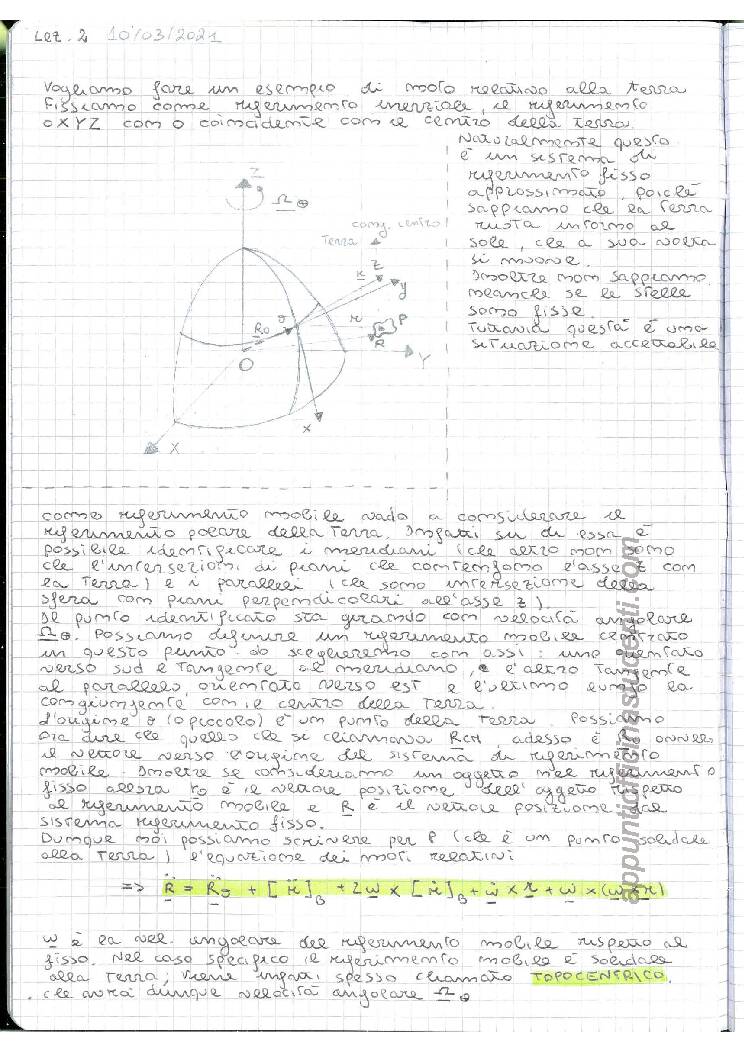 Lez. 2 10/03/2021
Vogliamo fare un esempio di moto relativo alla terra
Fissiamo come riferimento inerziale, il riferimento
OXYZ con O coincidente con il centro della terra.
Naturalmente questo
è un sistema di
riferimento fisso
approssimato, poiché
sappiamo che la terra
ruota intorno al
sole, che a sua volta
si muove.
Inoltre non sappiamo
neanche se le stelle
sono fisse.
Tuttavia questa è una
situazione accettabile
Z
Ω⊕
cong. centro
Terra
z
y
r
P
o
R0
R
O
Y
x
X
come riferimento mobile vado a considerare il
riferimento polare della Terra. Infatti su di essa è
possibile identificare i meridiani (che altro non sono
che l'intersezioni di piani che contengono l'asse Z con
la Terra) e i paralleli (che sono intersezione della
sfera con piani perpendicolari all'asse Z).
Il punto identificato sta girando con velocità angolare
Ω⊕. Possiamo definire un riferimento mobile centrato
in questo punto. Lo sceglieremo con assi: uno orientato
verso sud e tangente al meridiano, e l'altro tangente
al parallelo, orientato verso est e l'ultimo lungo la
congiungente con il centro della Terra.
L'origine o (o piccolo) è un punto della Terra. Possiamo
ora dire che quello che si chiamava RCM, adesso è R0 ovvero
il vettore verso l'origine del sistema di riferimento
mobile. Inoltre se consideriamo un oggetto nel riferimento
fisso allora r0 è il vettore posizione dell'oggetto rispetto
al riferimento mobile e R è il vettore posizione dal
sistema riferimento fisso.
Dunque noi possiamo scrivere per P (che è un punto solidale
alla Terra) l'equazione dei moti relativi
=> R̈ = R̈0 + [r̈]B + 2ω × [ṙ]B + ω̇ × r + ω × (ω × r)
ω è la vel. angolare del riferimento mobile rispetto al
fisso. Nel caso specifico il riferimento mobile è solidale
alla Terra; viene infatti spesso chiamato TOPOCENTRICO,
che avrà dunque velocità angolare Ω⊕
appuntiofficinastudesti.com